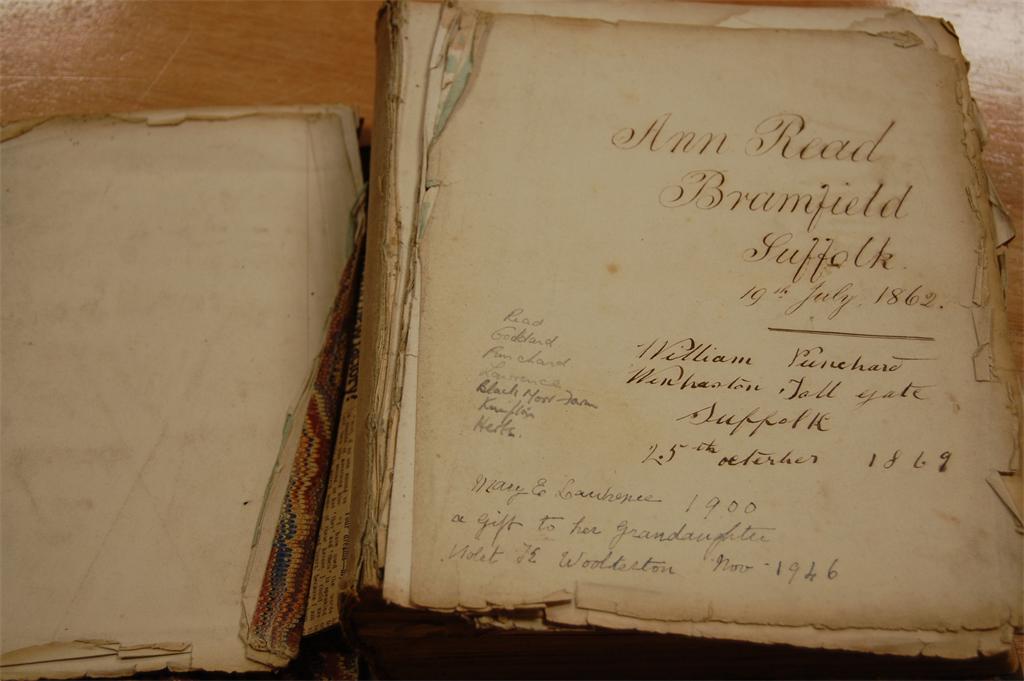 Ann Read
Bramfield
Suffolk
19th July 1862.
William Punchard
Wenhaston Toll gate
Suffolk
25th octerber 1869
Read
Goddard
Punchard
Lawrence
Black Moor Farm
Hects.
Mary E Lawrence 1900
a gift to her Grandaughter
Violet E Woolterton Nov - 1946